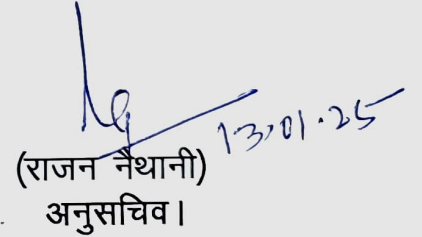 13.01.25
(राजन नैथानी)
अनुसचिव।